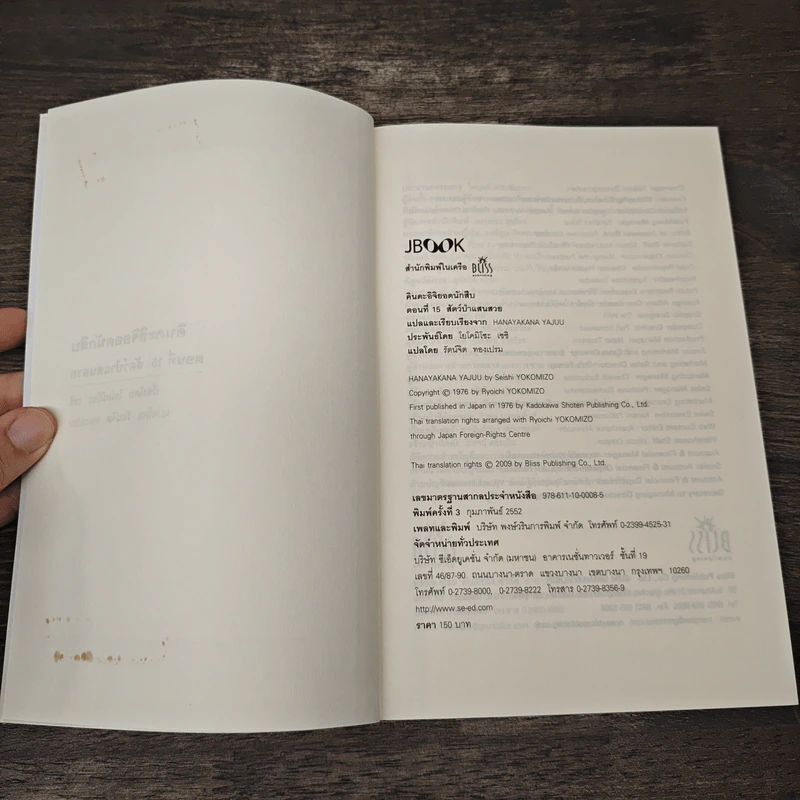 JBOOK
สำนักพิมพ์ในเครือ BLISS publishing
คินดะอิจิยอดนักสืบ
ตอนที่ 15 สัตว์ป่าแสนสวย
แปลและเรียบเรียงจาก HANAYAKANA YAJUU
ประพันธ์โดย โยโคมิโซะ เซชิ
แปลโดย รัตน์จิต ทองเปรม
HANAYAKANA YAJUU by Seishi YOKOMIZO
Copyright © 1976 by Ryoichi YOKOMIZO
First published in Japan in 1976 by Kadokawa Shoten Publishing Co., Ltd.
Thai translation rights arranged with Ryoichi YOKOMIZO
through Japan Foreign-Rights Centre
Thai translation rights © 2009 by Bliss Publishing Co., Ltd.
เลขมาตรฐานสากลประจำหนังสือ 978-611-10-0008-5
พิมพ์ครั้งที่ 3 กุมภาพันธ์ 2552
เพลทและพิมพ์ บริษัท พงษ์วรินการพิมพ์ จำกัด โทรศัพท์ 0-2399-4525-31
จัดจำหน่ายทั่วประเทศ
บริษัท ซีเอ็ดยูเคชั่น จำกัด (มหาชน) อาคารเนชั่นทาวเวอร์ ชั้นที่ 19
เลขที่ 46/87-90 ถนนบางนา-ตราด แขวงบางนา เขตบางนา กรุงเทพฯ 10260
โทรศัพท์ 0-2739-8000, 0-2739-8222 โทรสาร 0-2739-8356-9
http://www.se-ed.com
ราคา 150 บาท